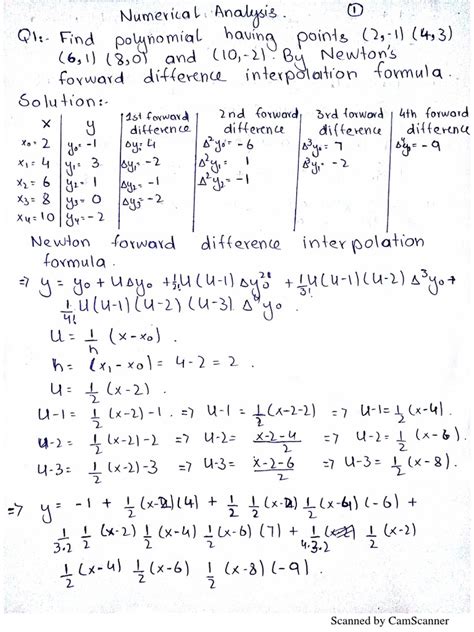 Numerical Analysis. ①
Q1:- Find polynomial having points (2,-1) (4,3)
(6,1) (8,0) and (10,-2). By Newton's
forward difference interpolation formula.
Solution:-
x | y | 1st forward difference | 2nd forward difference | 3rd forward difference | 4th forward difference
x₀= 2 | y₀= -1 | Δy₀= 4 | Δ²y₀= -6 | Δ³y₀= 7 | Δ⁴y₀= -9
x₁= 4 | y₁= 3 | Δy₁= -2 | Δ²y₁= 1 | Δ³y₁= -2
x₂= 6 | y₂= 1 | Δy₂= -1 | Δ²y₂= -1
x₃= 8 | y₃= 0 | Δy₃= -2
x₄= 10 | y₄= -2
Newton forward difference interpolation
formula.
=> y = y₀ + UΔy₀ + 1/2! U(U-1) Δy₀² + 1/3! U(U-1)(U-2) Δ³y₀ +
1/4! U(U-1)(U-2)(U-3) Δ⁴y₀.
U = 1/h (x-x₀)
h = (x₁-x₀) = 4-2 = 2.
U = 1/2 (x-2).
U-1 = 1/2 (x-2)-1 . => U-1 = 1/2 (x-2-2) => U-1 = 1/2 (x-4).
U-2 = 1/2 (x-2)-2 => U-2 = x-2-4/2 => U-2 = 1/2 (x-6).
U-3 = 1/2 (x-2)-3 => U-3 = x-2-6/2 => U-3 = 1/2 (x-8).
=> y = -1 + 1/2 (x-2)(4) + 1/2 1/2 (x-2) 1/2 (x-4) (-6) +
1/3.2 1/2 (x-2) 1/2 (x-4) 1/2 (x-6) (7) + 1/4.3.2 1/2 (x-2)
1/2 (x-4) 1/2 (x-6) 1/2 (x-8) (-9) .
Scanned by CamScanner